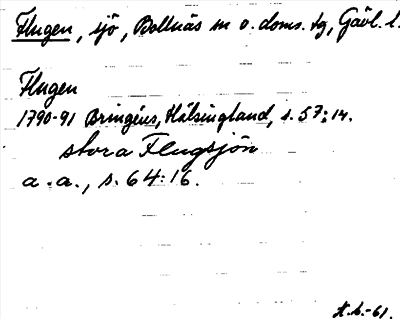 Flugen, sjö, Bollnäs sn o. doms. tg, Gävl. l.
Flugen
1790-91 Bringéus, Hälsingland, s. 57:14.
stora Flugsjön
a.a., s. 64:16.
H.b.-61.